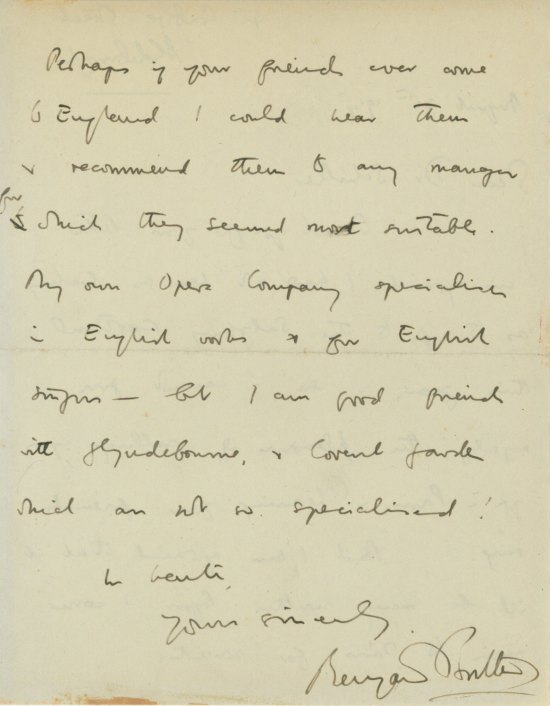 Perhaps if your friends ever come
to England I could hear them
& recommend them to any manager
for
which they seemed most suitable.
My own Opera Company specialises
in English works & for English
singers — but I am good friends
with Glyndebourne, & Covent Garden
which are not so specialised!
In haste,
Yours sincerely
Benjamin Britten